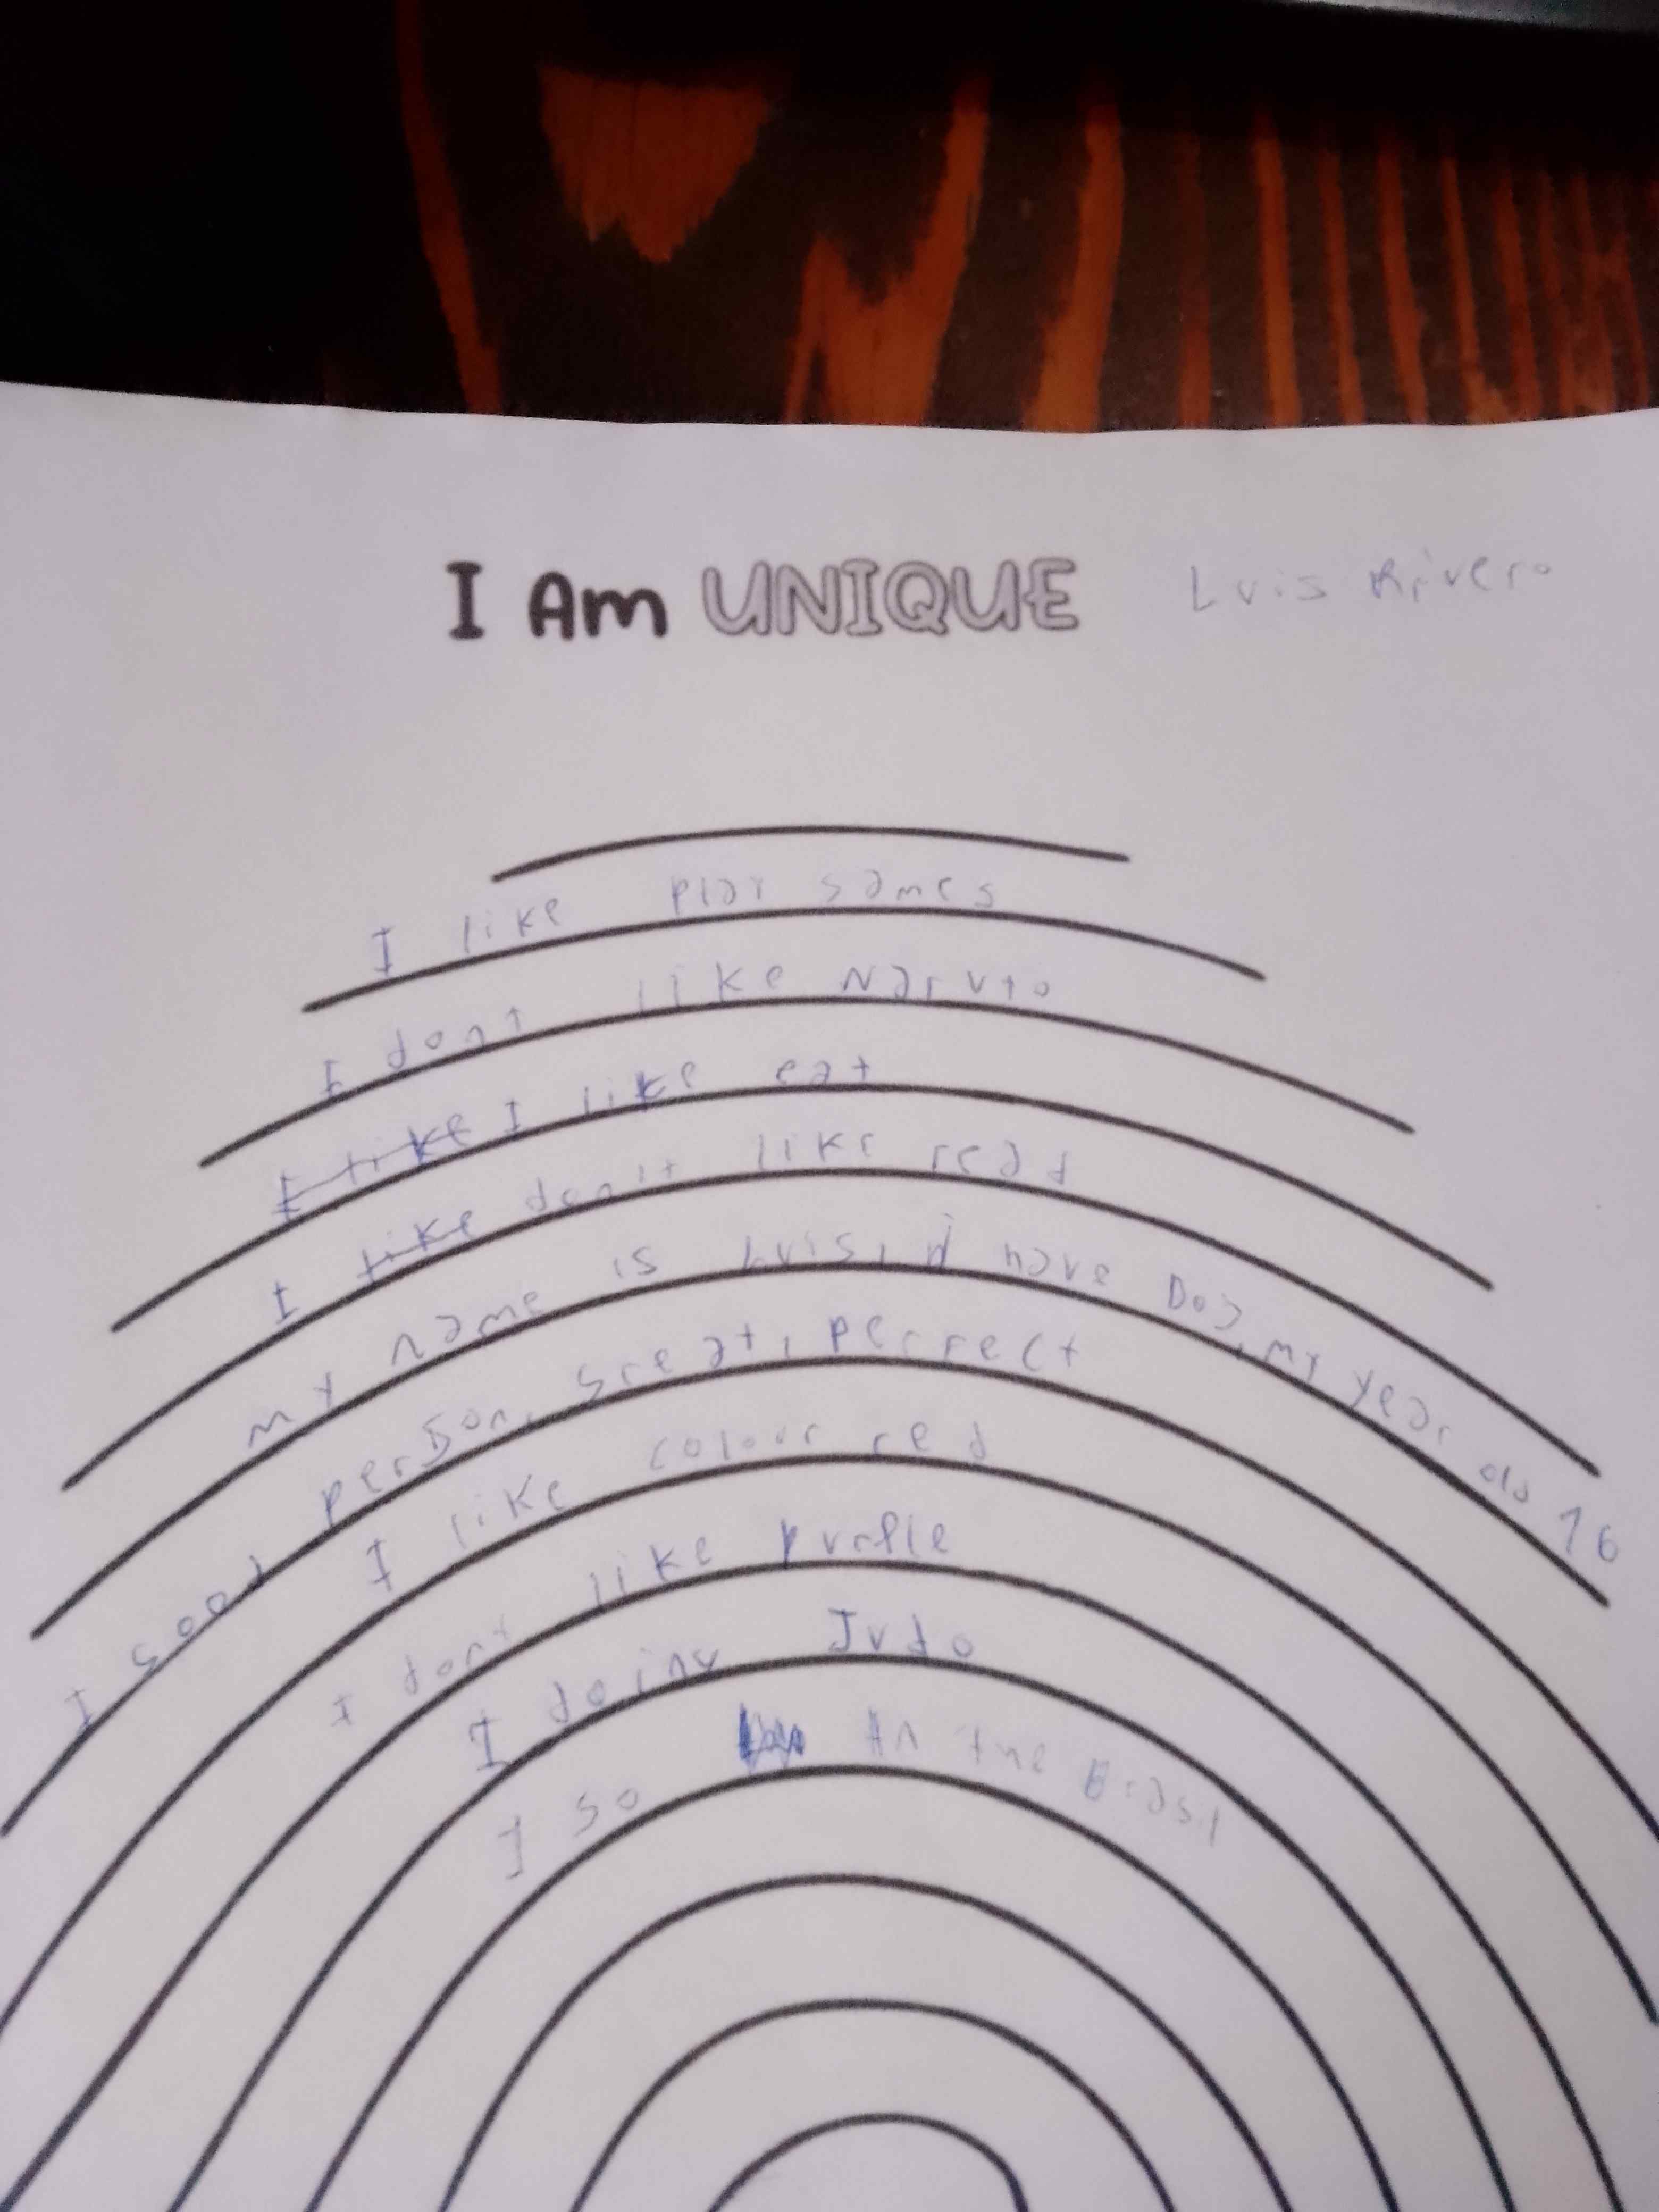 I Am UNIQUE Luis Rivero
I like play games
I dont like Naruto
I like I like eat
I like don't like read
my name is Luis, I have Dog, my year old 16
I good person, great, perfect
I like colour red
I dont like purple
I doing Judo
I go in the Brasil